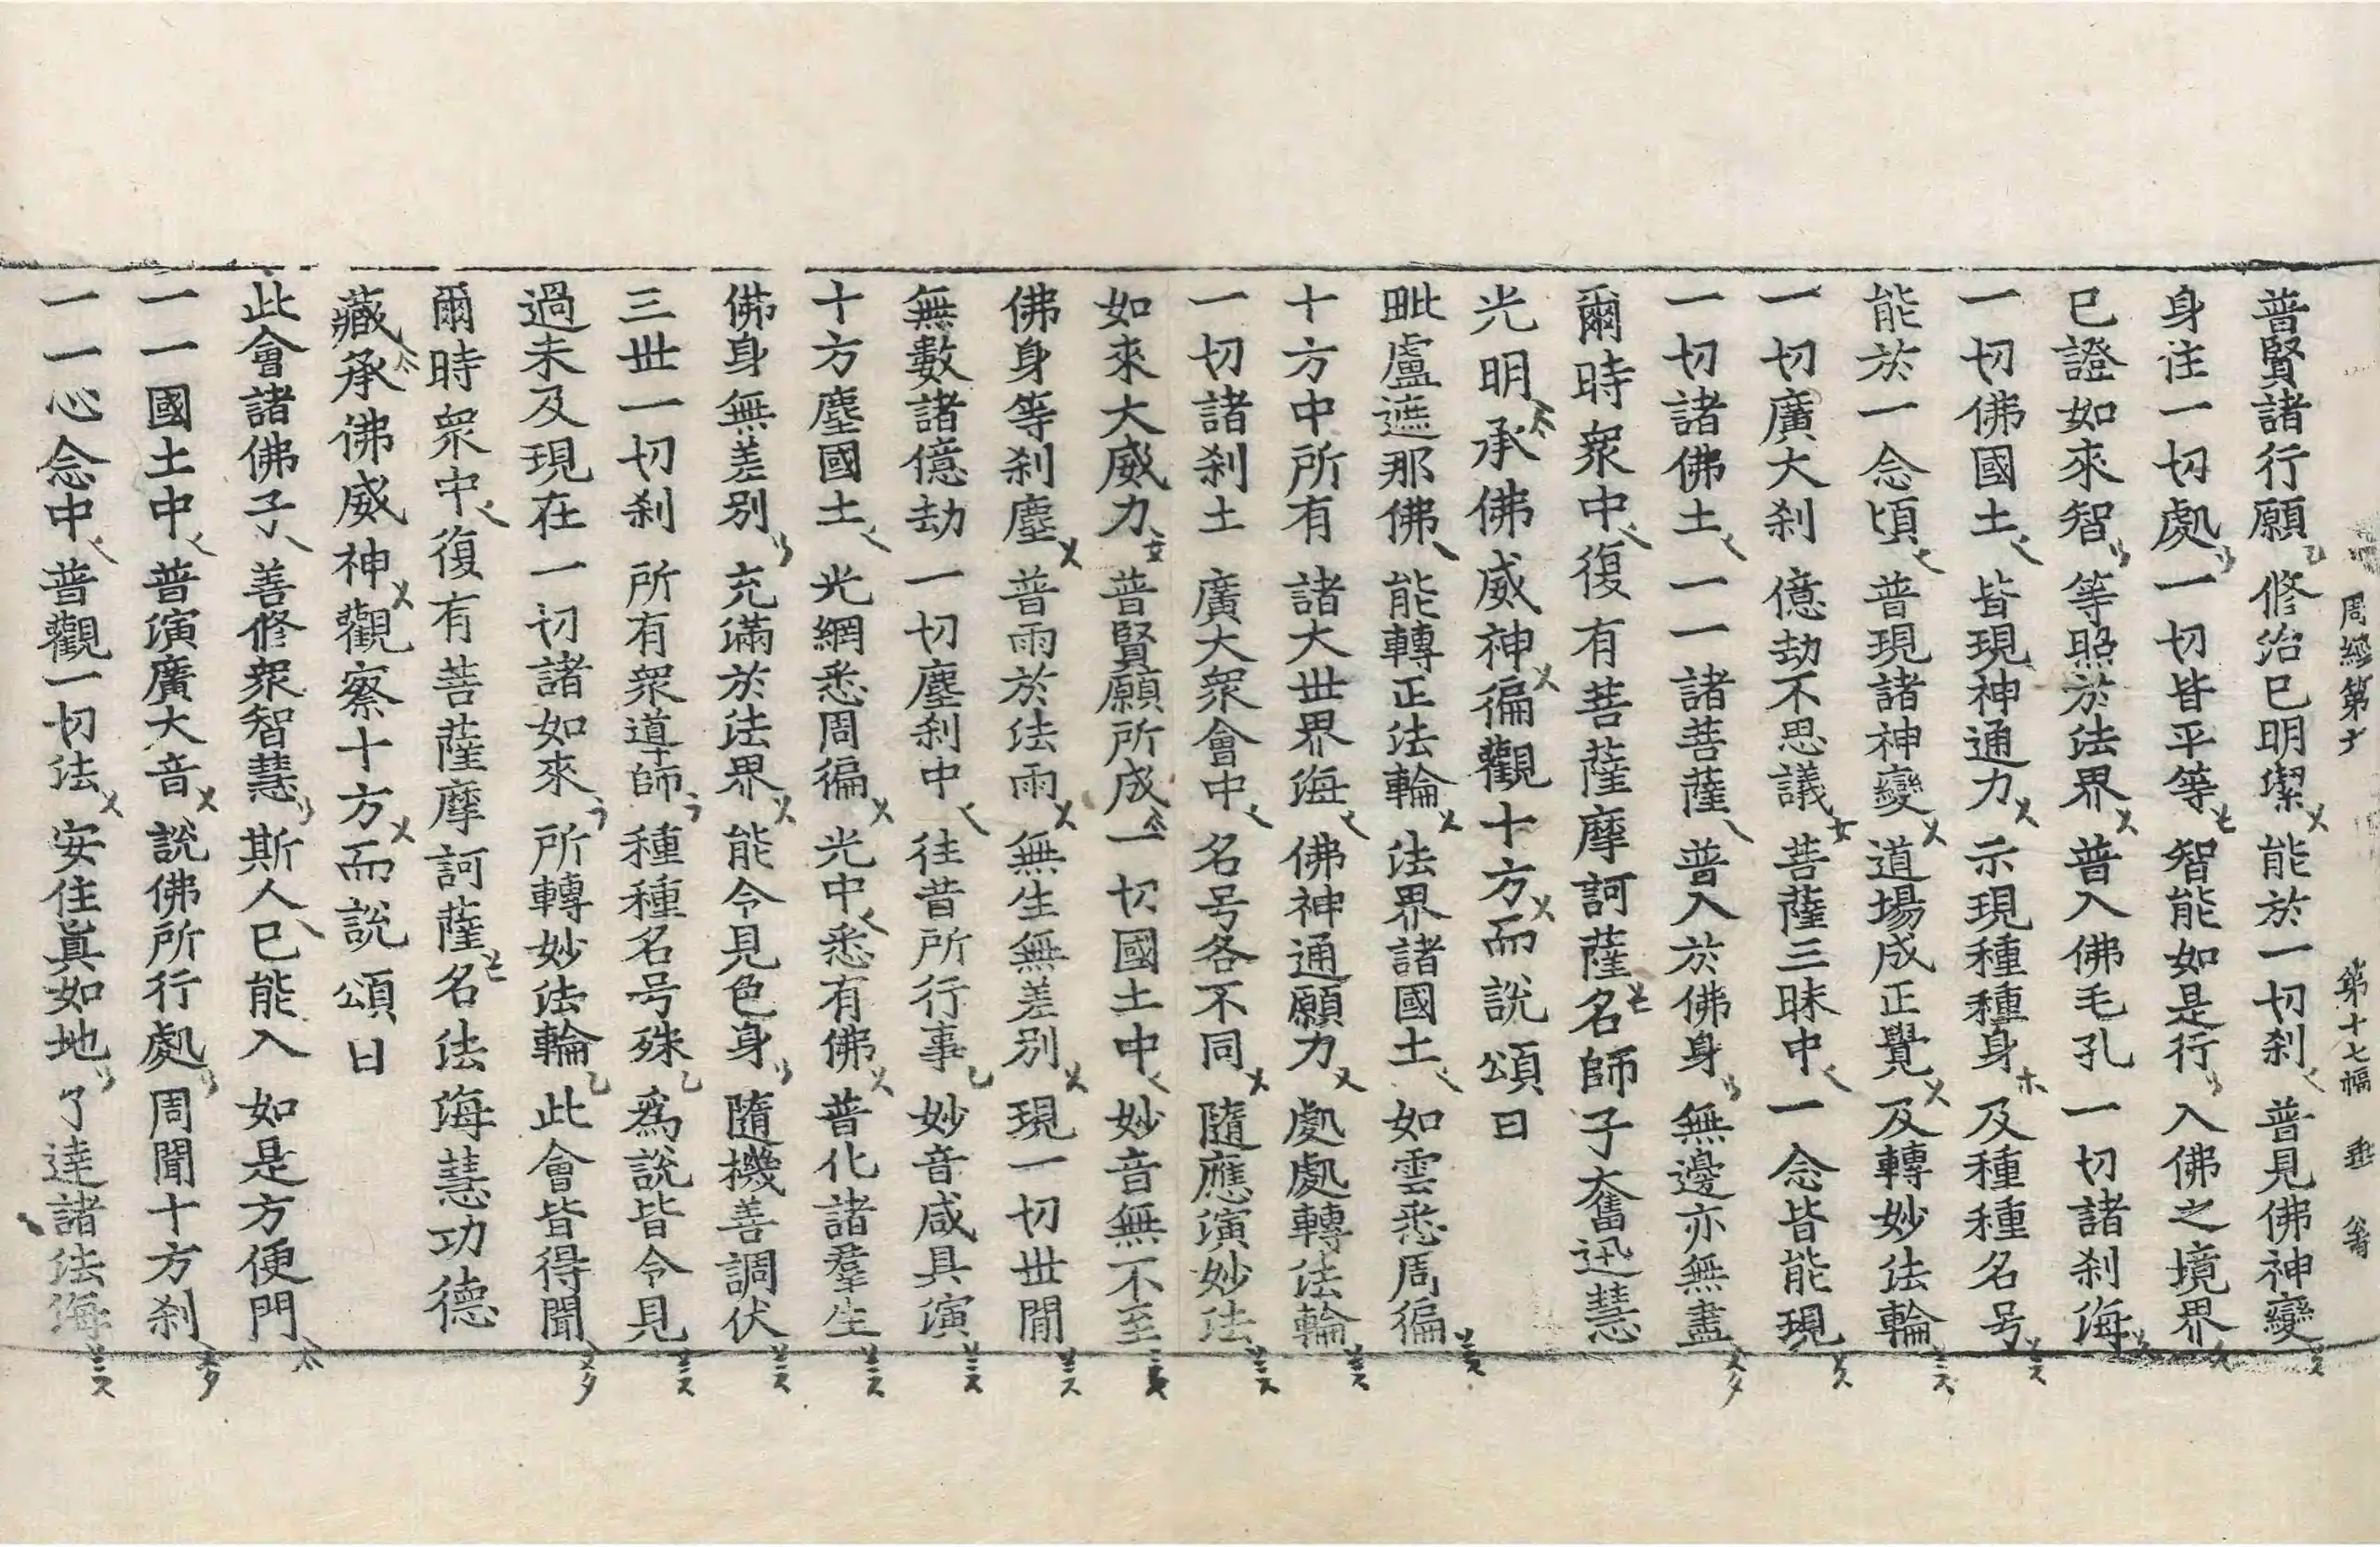 周經第六 第十七幅
普賢諸行願 修治已明潔 能於一切刹 普見佛神變
身住一切處 一切皆平等 智能如是行 入佛之境界
已證如來智 等照於法界 普入佛毛孔 一切諸刹海
一切佛國土 皆現神通力 示現種種身 及種種名号
能於一念頃 普現諸神變 道場成正覺 及轉妙法輪
一切廣大刹 億劫不思議 菩薩三昧中 一念皆能現
一切諸佛土 一一諸菩薩 普入於佛身 無邊亦無盡
爾時衆中復有菩薩摩訶薩名師子奮迅慧
光明承佛威神徧觀十方而說頌曰
毗盧遮那佛 能轉正法輪 法界諸國土 如雲悉周徧
十方中所有 諸大世界海 佛神通願力 處處轉法輪
一切諸刹土 廣大衆會中 名号各不同 隨應演妙法
如來大威力 普賢願所成 一切國土中 妙音無不至
佛身等刹塵 普雨於法雨 無生無差別 現一切世間
無數諸億劫 一切塵刹中 往昔所行事 妙音咸具演
十方塵國土 光網悉周徧 光中悉有佛 普化諸羣生
佛身無差別 充滿於法界 能令見色身 隨機善調伏
三世一切刹 所有衆導師 種種名号殊 爲說皆令見
過未及現在 一切諸如來 所轉妙法輪 此會皆得聞
爾時衆中復有菩薩摩訶薩名法海慧功德
藏承佛威神觀察十方而說頌曰
此會諸佛子 善修衆智慧 斯人已能入 如是方便門
一一國土中 普演廣大音 說佛所行處 周聞十方刹
一一心念中 普觀一切法 安住眞如地 了達諸法海